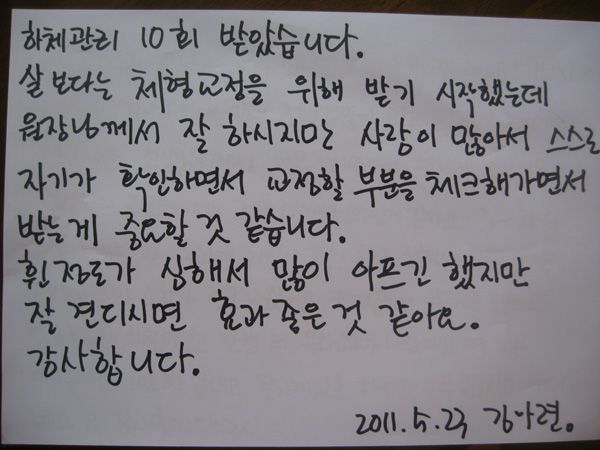 하체관리 10회 받았습니다.
살보다는 체형교정을 위해 받기 시작했는데
원장님께서 잘 하시지만 사람이 많아서 스스로
자기가 확인하면서 교정할 부분을 체크해가면서
받는게 중요할 것 같습니다.
휜 정도가 심해서 많이 아프긴 했지만
잘 견디시면 효과 좋은 것 같아요.
감사합니다.
2011.5.23